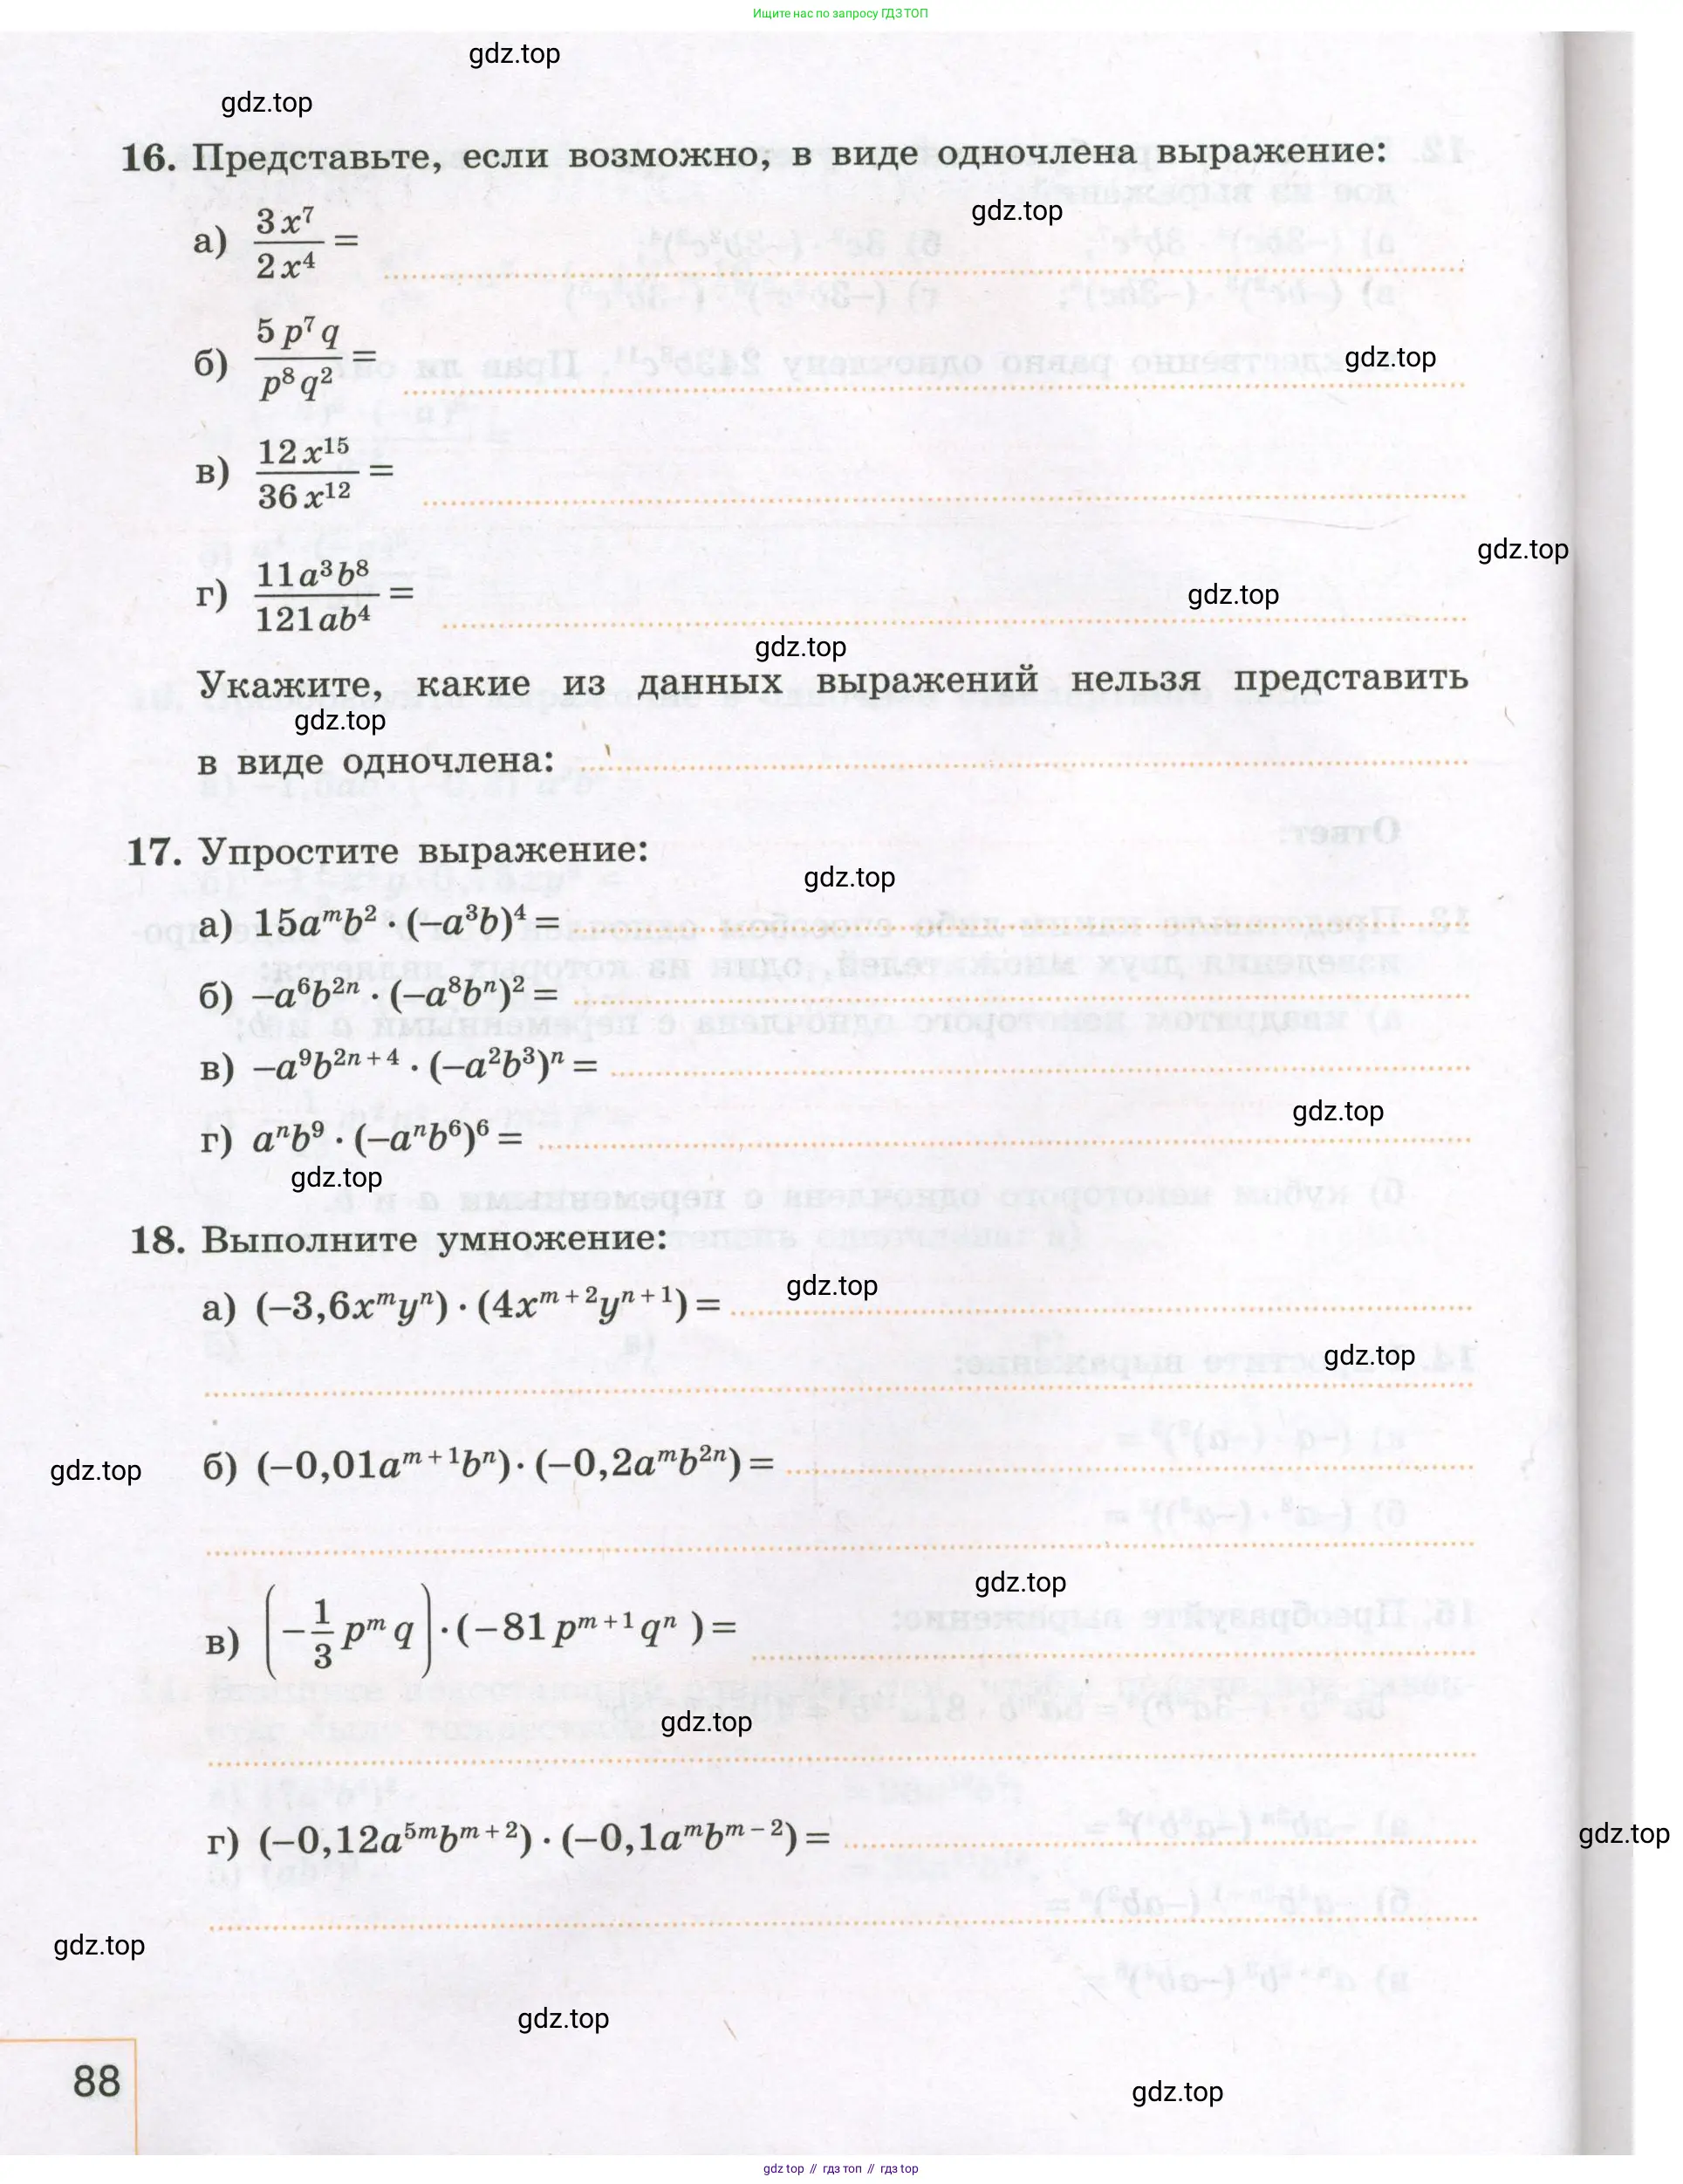 Ищите нас по запросу ГДЗ ТОП
gdz.top
gdz.top
16. Представьте, если возможно, в виде одночлена выражение:
gdz.top
а) 3x⁷/2x⁴ =
б) 5p⁷q/p⁸q² =
gdz.top
в) 12x¹⁵/36x¹² =
gdz.top
г) 11a³b⁸/121ab⁴ =
gdz.top
gdz.top
Укажите, какие из данных выражений нельзя представить
gdz.top
в виде одночлена:
17. Упростите выражение:
gdz.top
а) 15aᵐb² · (–a³b)⁴ =
б) –a⁶b²ⁿ · (–a⁸bⁿ)² =
в) –a⁹b²ⁿ⁺⁴ · (–a²b³)ⁿ =
gdz.top
г) aⁿb⁹ · (–aⁿb⁶)⁶ =
gdz.top
18. Выполните умножение:
gdz.top
а) (–3,6xᵐyⁿ) · (4xᵐ⁺²yⁿ⁺¹) =
gdz.top
gdz.top
б) (–0,01aᵐ⁺¹bⁿ) · (–0,2aᵐb²ⁿ) =
gdz.top
в) (–1/3 pᵐq) · (–81pᵐ⁺¹qⁿ) =
gdz.top
г) (–0,12a⁵ᵐbᵐ⁺²) · (–0,1aᵐbᵐ⁻²) =
gdz.top
gdz.top
gdz.top
88
gdz.top
gdz top // гдз топ // gdz top